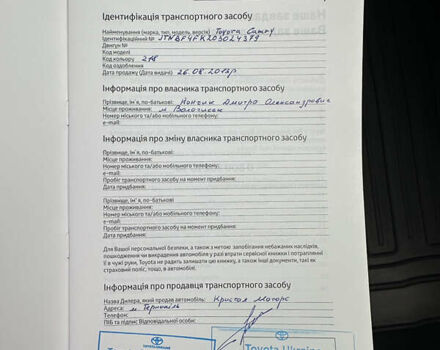 Ідентифікація транспортного засобу
Найменування (марка, тип, модель, версія) Toyota Camry
Ідентифікаційний №
Двигун №
Код моделі
Код кольору 218
Код оздоблення
Дата продажу (Дата видачі) 26.08.2013р
Інформація про власника транспортного засобу
Прізвище, Ім`я, по-батькові: Дмитро Олександрович
Місце проживання: м
Номер міського та/або мобільного телефону:
e-mail:
Інформація про зміну власника транспортного засобу
Прізвище, Ім`я, по-батькові:
Місце проживання:
Номер міського та/або мобільного телефону:
e-mail:
Пробіг транспортного засобу на момент придбання:
Дата придбання:
Прізвище, Ім`я, по-батькові:
Місце проживання:
Номер міського та/або мобільного телефону:
e-mail:
Пробіг транспортного засобу на момент придбання:
Дата придбання:
Для Вашої персональної безпеки, а також з метою запобігання небажаних наслідків,
пошкодження чи викрадення автомобіля у разі втрати сервісної книжки і потраплянні
її в чужі руки, Toyota не радить залишати цю книжку, а також інші документи, такі як
страховий поліс, тощо, в автомобілі.
Інформація про продавця транспортного засобу
Назва Дилера, який продав автомобіль: Кристал Моторс
Адреса: м Тернопіль
Телефон:
ПІБ та підпис Відповідальної особи:
Toyota Ukraine